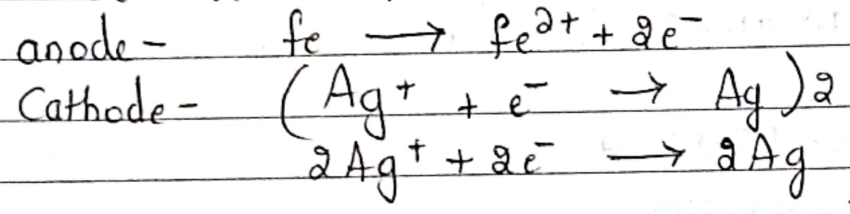 anode - fe → fe²⁺ + 2e⁻
Cathode - (Ag⁺ + e⁻ → Ag)2
2Ag⁺ + 2e⁻ → 2Ag